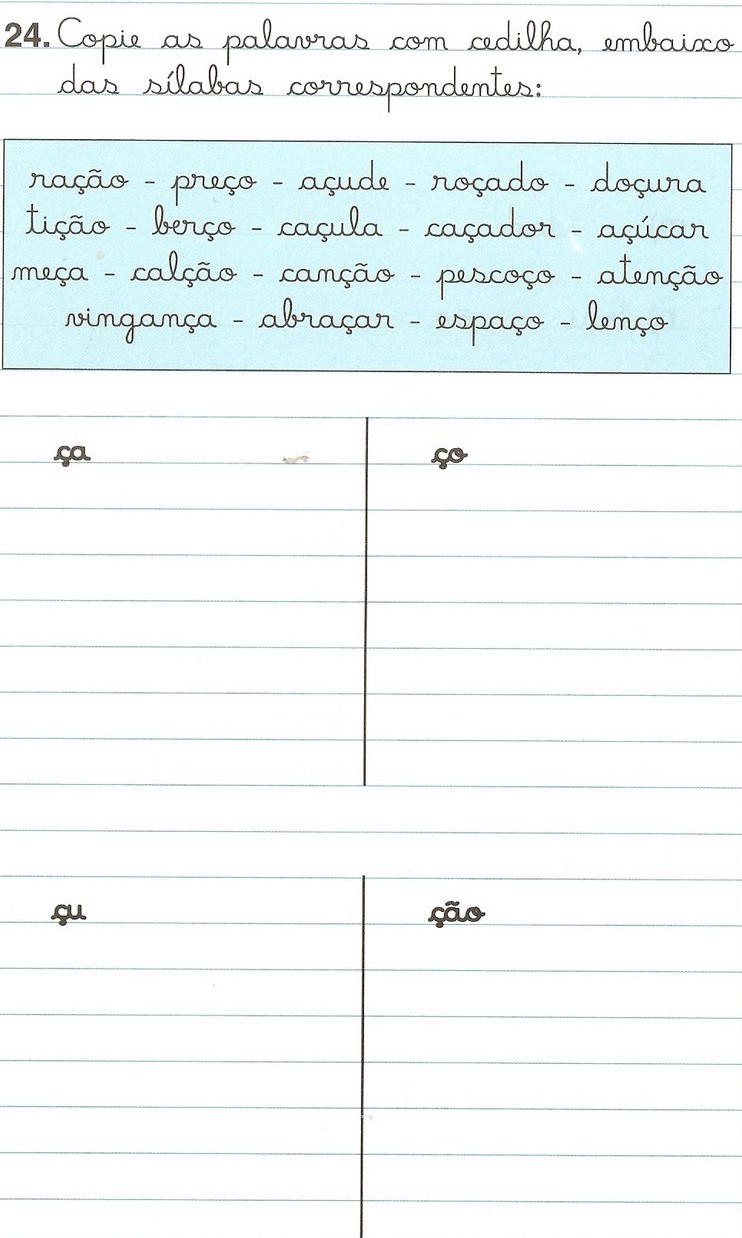 24. Copie as palavras com cedilha, embaixo
das sílabas correspondentes:
ração - preço - açude - roçado - doçura
tição - berço - caçula - caçador - açúcar
meça - calção - canção - pescoço - atenção
vingança - abraçar - espaço - lenço
ça ço
çu ção